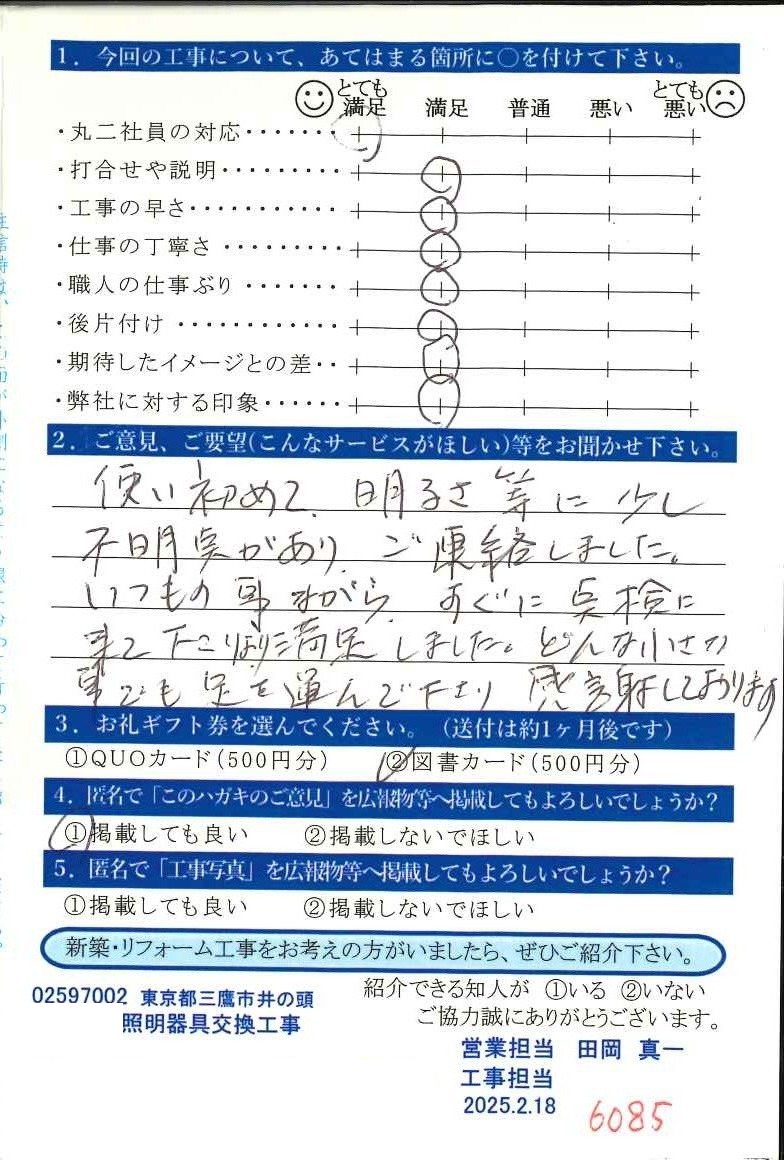 1. 今回の工事について、あてはまる箇所に○を付けて下さい。
とても満足 満足 普通 悪い とても悪い
・丸二社員の対応・・・・・・・
・打合せや説明・・・・・・・・・
・工事の早さ・・・・・・・・・・・
・仕事の丁寧さ・・・・・・・・・
・職人の仕事ぶり・・・・・・・
・後片付け・・・・・・・・・・・・
・期待したイメージとの差・・
・弊社に対する印象・・・・・・
2. ご意見、ご要望(こんなサービスがほしい)等をお聞かせ下さい。
使い初めて、明るさ等に少し
不明点があり、ご連絡しました。
いつもの事ながら、すぐに点検に
来て下さり満足しました。どんな小さな
事でも足を運んで下さり感謝しております
3. お礼ギフト券を選んでください。(送付は約1ヶ月後です)
①QUOカード(500円分) ②図書カード(500円分)
4. 匿名で「このハガキのご意見」を広報物等へ掲載してもよろしいでしょうか?
①掲載しても良い ②掲載しないでほしい
5. 匿名で「工事写真」を広報物等へ掲載してもよろしいでしょうか?
①掲載しても良い ②掲載しないでほしい
新築・リフォーム工事をお考えの方がいましたら、ぜひご紹介下さい。
紹介できる知人が ①いる ②いない
ご協力誠にありがとうございます。
02597002 東京都三鷹市井の頭
照明器具交換工事
営業担当 田岡 真一
工事担当
2025.2.18
6085